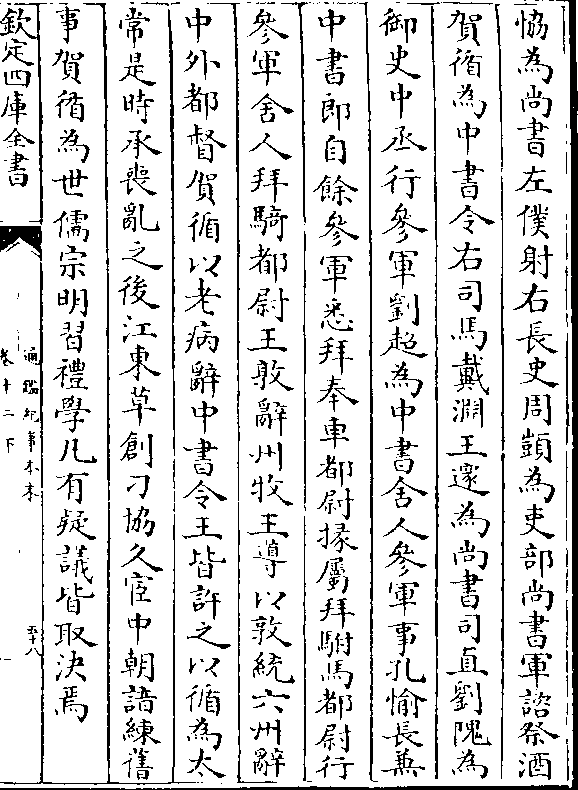 恊為尚書左僕射右長史周顗為吏部尚書軍諮祭酒
賀循為中書令右司馬戴淵王邃為尚書司直劉隗為
御史中丞行參軍劉超為中書舍人參軍事孔愉長兼
中書郎自餘參軍悉拜奉車都尉掾屬拜駙馬都尉行
參軍舍人拜騎都尉王敦辭州牧王導以敦統六州辭
中外都督賀循以老病辭中書令王皆許之以循為太
常是時承喪亂之後江東草創刁協久宦中朝諳練舊
事賀循為世儒宗明習禮學凡有疑議皆取決焉
欽定四庫全書
通鑑紀事本末
卷十二下
五十八